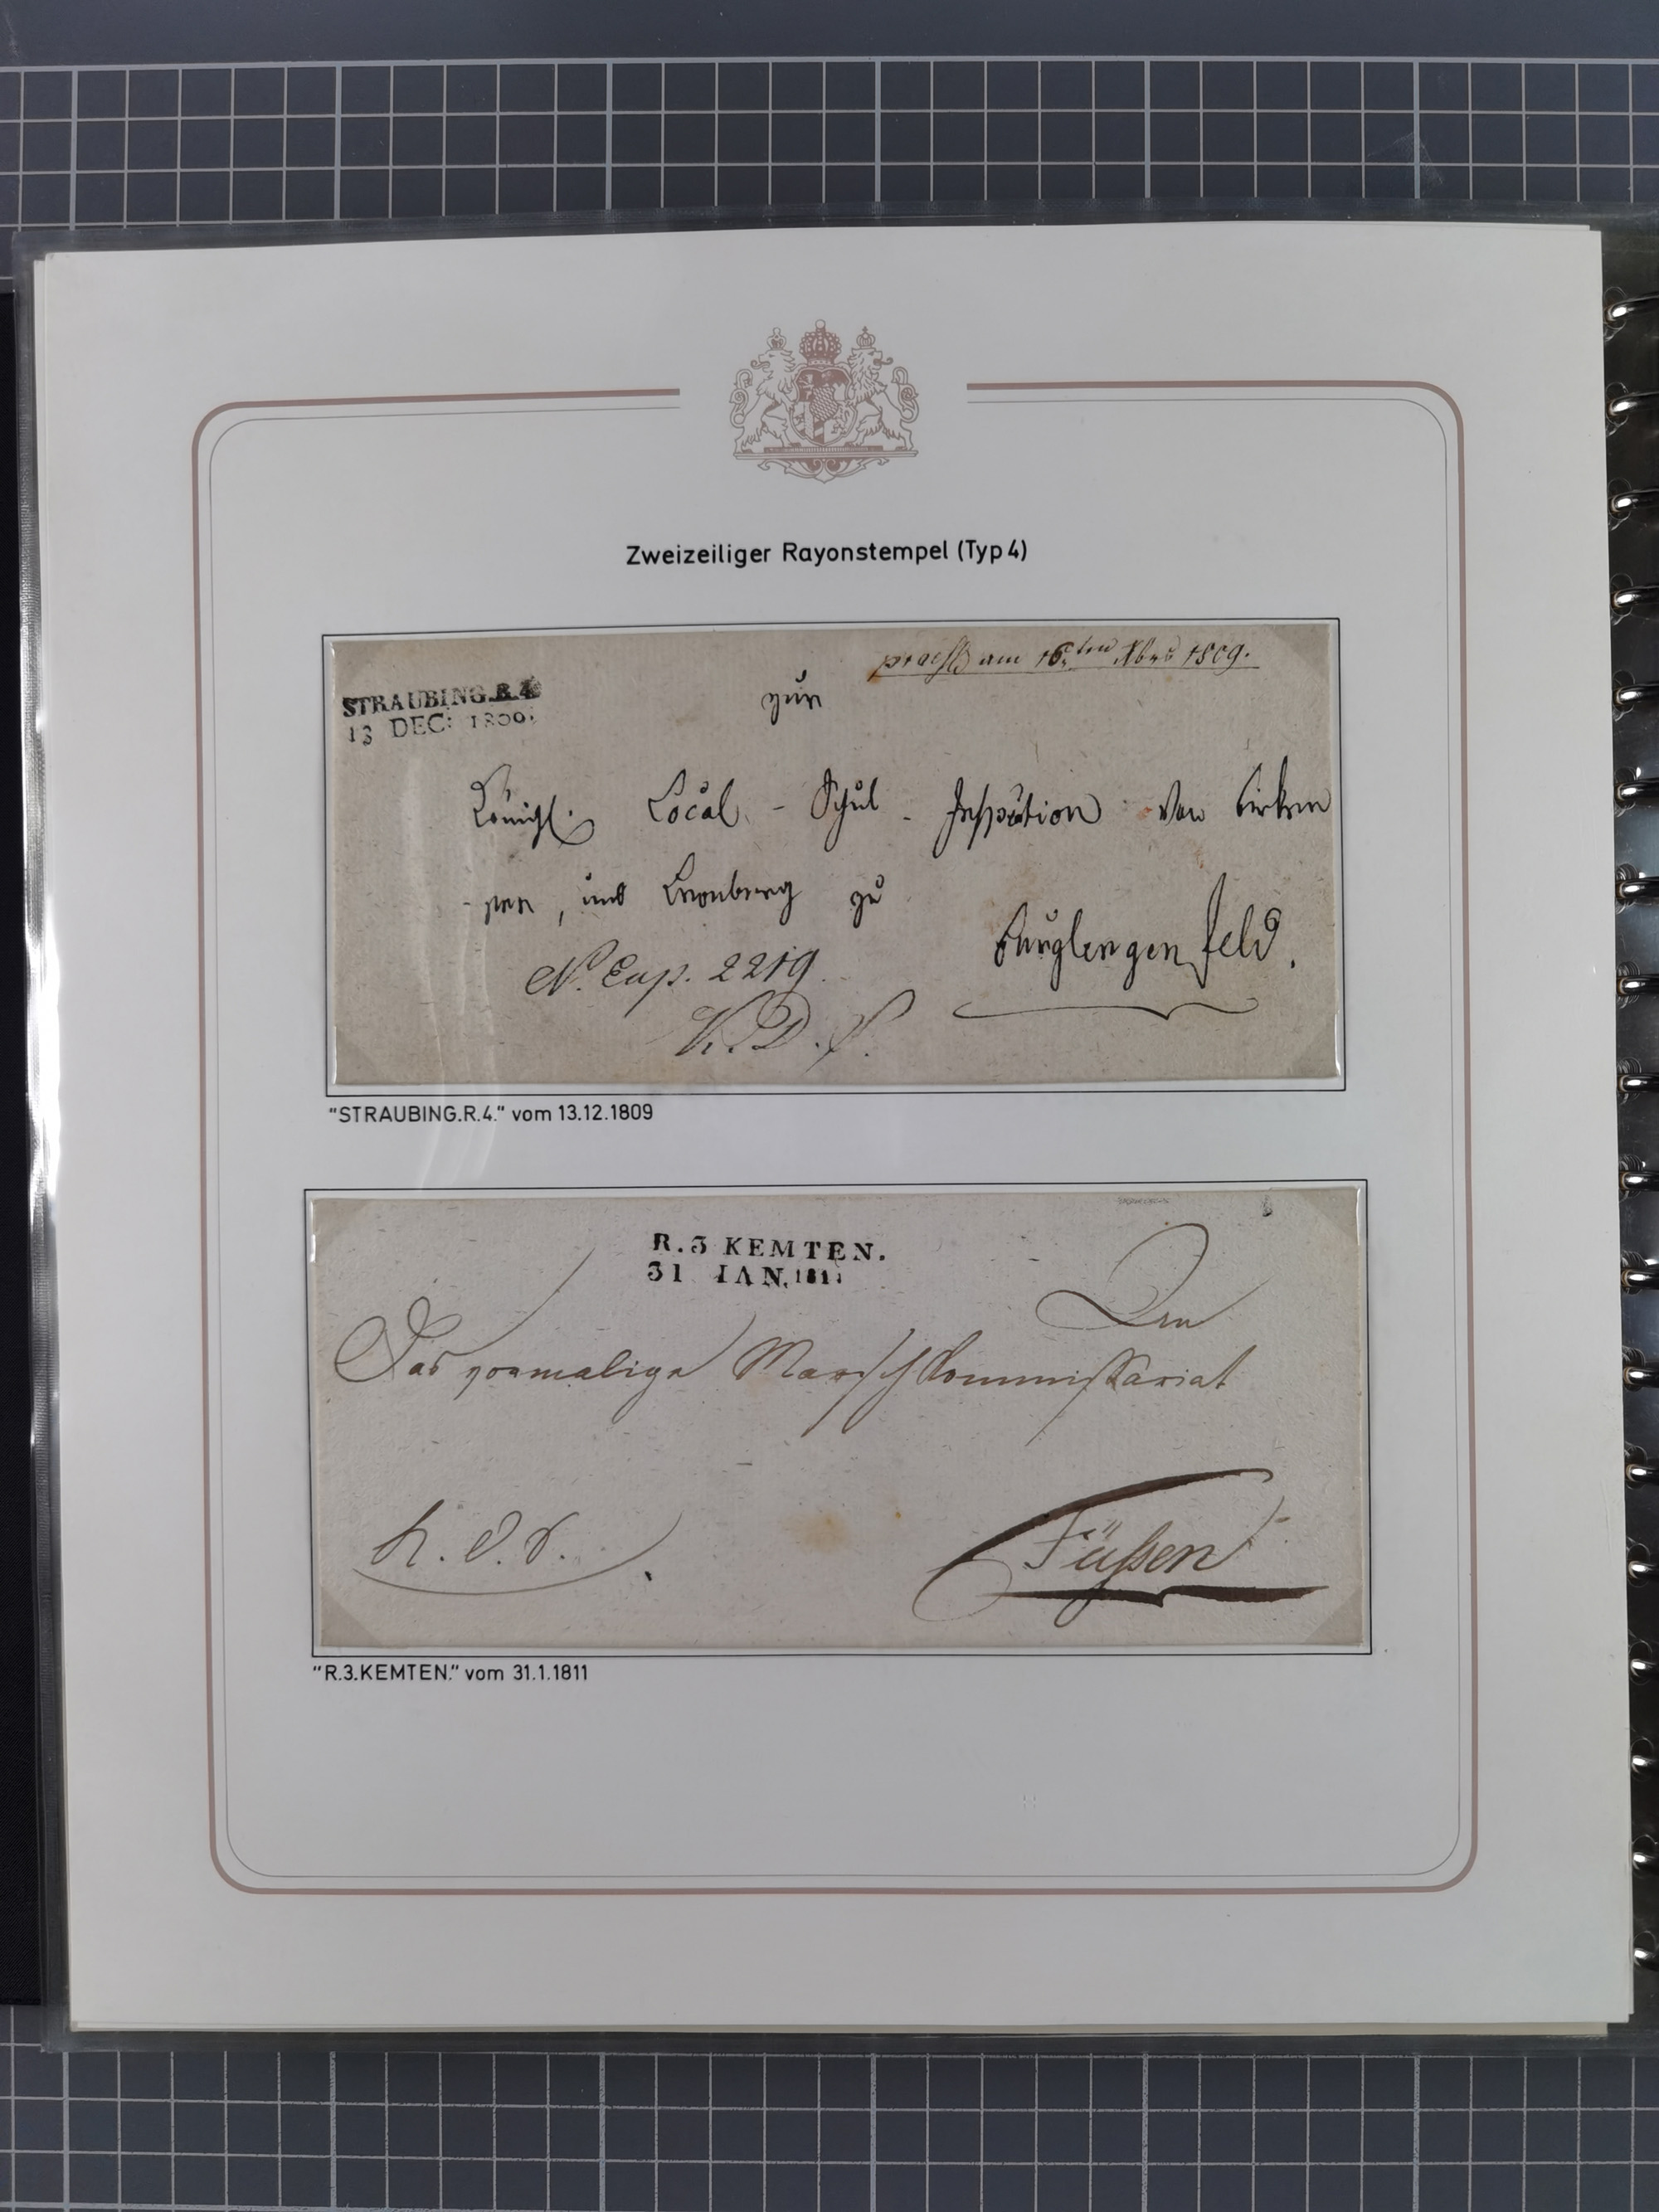 Zweizeiliger Rayonstempel (Typ 4)
am 16ten Xbris 1809.
STRAUBING.R.4
13 DEC: 1809.
zur
Königl. Local - Schul - Inspection von
und zu
Burglengenfeld.
N. Exp. 2219
K. D. S.
"STRAUBING.R.4." vom 13.12.1809
R.3 KEMTEN.
31 IAN. 1811
Das vormalige Marsch Kommissariat
Füßen
"R.3.KEMTEN." vom 31.1.1811